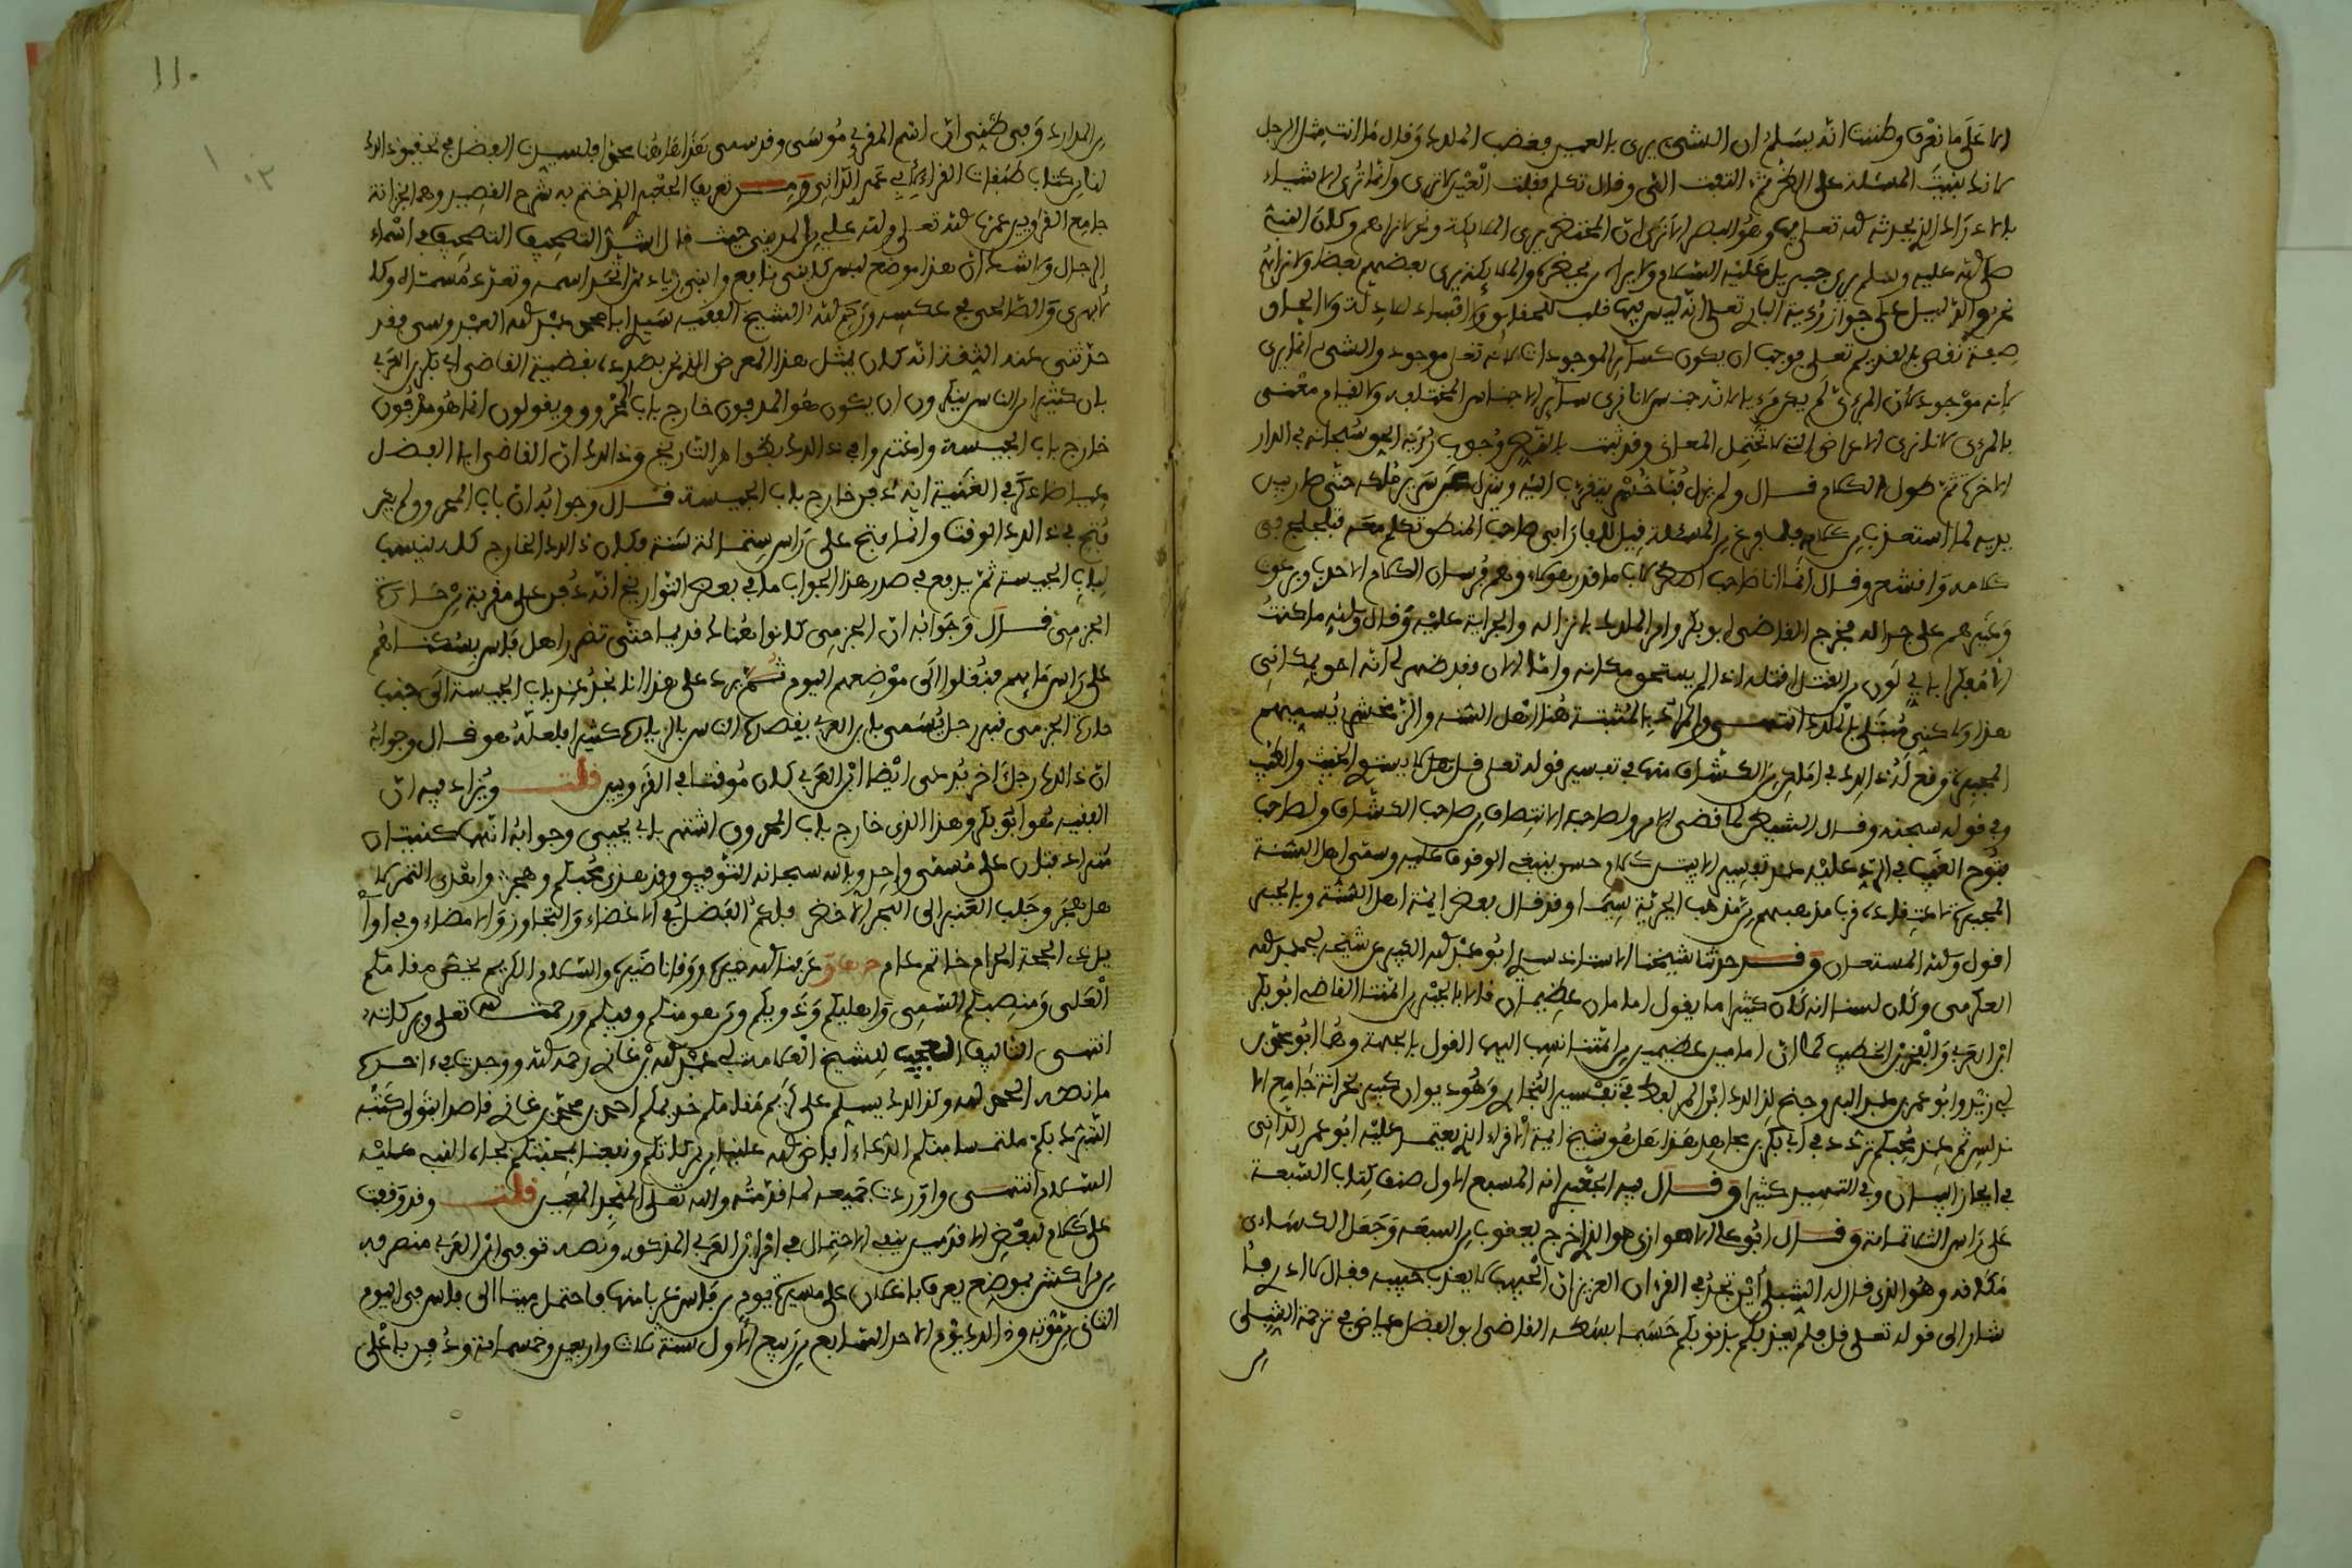 الا على ما نعرف وظننت انه يسلم ان الشيء يرى بالعين فغضب الملك وقال ما انت مثل الرجل
الذي بنيت المسئلة على ثم التفت الي وقال تكلم فقلت العين لا ترى وانما ترى الاشياء
بالادراك الذي يحدثه الله تعالى فيها وهو البصر الا ترى ان المحتضر يرى الملائكة ونحن لا نراهم وكان النبي
صلى الله عليه وسلم يرى جبريل عليه السلام ولا يراه من يحضره والملائكة يرى بعضهم بعضا ولا نراهم
الدليل على جواز رؤية الباري تعالى انه ليس فيها قلب للحقائق ولا افساد للادلة ولا الحاق
صفة نقص بالقديم تعالى فوجب ان يكون كسائر الموجودات لانه تعالى موجود والشيء انما يرى
لانه موجود لان المرءي لم يكن مرءيا لانه جنس لانا نرى سائر الاجناس المختلفة ولا لقيام معنى
بالمرءي لانا نرى الاعراض التي لا تحتمل المعاني وقد ثبت بالنص وجوب رؤية الحق سبحانه في الدار
الاخرة ثم طول الكلام قال ولم يزل فناخسرو يتقرب اليه وينزل عن سرير ملكه حتى صار بين
يديه لما استعذب من كلامه فلما فرغ من المسئلة قيل للفارابي صاحب المنطق تكلم معه فتلجلج في
كلامه واقشعر وقال انما انا صاحب اصطرلاب ما قدر هؤلاء وهم فرسان الكلام الاحدب وبرغوث
وغيرهم على جداله فخرج القاضي ابو بكر وامر الملك بانزاله والجراية عليه وقال والله ما كنت
الا مفكرا باي لون من القتل اقتله اذا لم يستحق مكانه واما الان فقد ظهر لي انه احق بمكاني
هذا ولكني مبتلى بالملك انتهى والمراد بالمثبتة هنا اهل السنة والزمخشري يسميهم
المجبرة وقع له ذلك في اماكن من الكشاف منها في تفسير قوله تعالى قل لا يستوي الخبيث والطيب
وفي قوله سبحنه وقال الشيطن لما قضي الامر ولصاحبه الانتصاف من صاحب الكشاف ولصاحب
فتوح الغيب في الرد عليه عند تفسير الايتين كلام حسن ينبغي الوقوف عليه وسمى اهل السنة
المجبرة لاعتقاده قرب مذهبهم من مذهب الجبرية سيما وقد قال بعض ايمة اهل السنة وبالجبر
اقول والله المستعان وقد حدثنا شيخنا الاستاذ سيدي ابو عبد الله الكبير عن شيخه ابي عبد الله
العكرمي وكان لسنا انه كان كثيرا ما يقول امامان عظيمان قالا بالجبر من ائمتنا القاضي ابو بكر
ابن العربي والفخر ابن الخطيب كما ان امامين عظيمين من ائمتنا نسب اليهما القول بالجهة وهما ابو محمد
ابن ابي زيد وابو عمر بن عبد البر وجنح لذلك ابن المرابط في تفسير البخاري وهو ديوان كبير بخزانة جامع الا
ندلس ثم عند محبكم تردد في ابي بكر بن مجاهد هذا هل هو شيخ ايمة الاقراء الذي يعتمد عليه ابو عمرو الداني
في ايجاز البيان وفي التيسير كثيرا وقال فيه الجعبري انه المسبع الاول صنف كتاب السبعة
على راس الثلاثمائة وقال ابو علي الاهوازي هو الذي اخرج يعقوب من السبعة وجعل الكساءي
مكانه وهو الذي قال له الشبلي اين تجد في القرءان العزيز ان الحبيب لا يعذب حبيبه فقال لا ادري فا
شار الى قوله تعالى قل فلم يعذبكم بذنوبكم حسبما بسطه القاضي ابو الفضل عياض في ترجمة الشبلي
من
١١٠
من المدارك وفي ظني ان اسم المقرئ موسى وقد سمى هذا هاهنا محمدا فلسيدنا الفضل في تحقيق ذلك
لنا من كتاب طبقات القراء لابي عمرو الداني ومن تعريف الجعبري الذي ختم به شرح القصيد وهما بخزانة
جامع القرويين عمرها الله تعالى ولله علي بن المديني حيث قال اشد التصحيف التصحيف في اسماء
الرجال ولا شك ان هذا موضع ليس كابني نافع وابني زياد مما اتحد اسمه وتعدد مسماه وكا
لابهري والصالحي في عكسه ورحم الله الشيخ الفقيه سيدي ابا محمد عبد الله العبدوسي فقد
حدثني عنه الثقة انه كان يمثل هذا المعرض الذي نحن بصدده بقضية القاضي ابي بكر بن العربي
بان كثيرا من الناس ينكرون ان يكون هو المدفون خارج باب المحروق ويقولون انما هو مدفون
خارج باب الجيسة واغتروا في ذلك بظواهر التاريخ وذلك ان القاضي ابا الفضل
عياضا ذكر في الغنية انه دفن خارج باب الجيسة قال وجوابه ان باب المحروق لم يكن
فتح في ذلك الوقت وانما فتح على راس ستمائة سنة فكان ذلك الخارج كله ينسب
لباب الجيسة ثم يدفع في صدر هذا الجواب ما في بعض التواريخ انه دفن على مقربة من حارة
الجزمى قال وجوابه ان الجزمى كانوا هنالك قديما حتى تضرر اهل فاس بسكناهم
على راس مائهم فنقلوا الى موضعهم اليوم ثم يرد على هذا انا نجد عند باب الجيسة الى جنب
حارة الجزمى قبر رجل يسمى بابن العربي يقصده الناس بالزيارة كثيرا فلعله هو قال وجوابه
ان ذلك رجل اخر يدعى ايضا ابن العربي كان موقتا في القرويين قلت ويزاد فيه ان
الفقيه هو ابو بكر وهذا الذي خارج باب المحروق اشتهر بابي يحيى وجوابه انهما كنيتان
مترادفتان على مسمى واحد وبالله سبحانه التوفيق وقد هذى محبكم وهجر واهدى التمر الى
هل هجر وجلب العنبر الى البحر الاخضر فلكم الفضل في الاغضاء والتجاوز والامضاء وفي اوا
يل ذي الحجة الحرام خاتم عام عرفنا الله خيره ووقانا ضيره والسلام الكريم يخص مقامكم
العلي ومنصبكم السني واهليكم وذويكم ومن هو منكم واليكم ورحمت الله تعالى وبركاته
انتهى التاليف العجيب للشيخ العلامة ابي عبد الله بن غازي رحمه الله ووجدت في ءاخره
ما نصه الحمد لله وكذلك يسلم على كريم مقامكم خديمكم احمد بن محمد بن غازي قاصدا بتولي كتبه
التبرك بكم ملتمسا منكم الدعاء افاض الله علينا من بركاتكم ونفعنا بمحبتكم بجاه النبي عليه
السلام انتهى واوردت جميعه لما قدمته والله تعالى المنجد المعين قلت وقد وقفت
على كلام لبعض الاقدمين ينفي الاحتمال في امر ابن العربي المذكور ونصه توفي ابن العربي منصرفه
من مراكش بموضع يعرف باغلان على مسيرة يوم من فاس غربا منها فاحتمل ميتا الى فاس في اليوم
الثاني من موته وذلك يوم الاحد السابع من ربيع الاول سنة ثلاث واربعين وخمسمائة ودفن باعلى